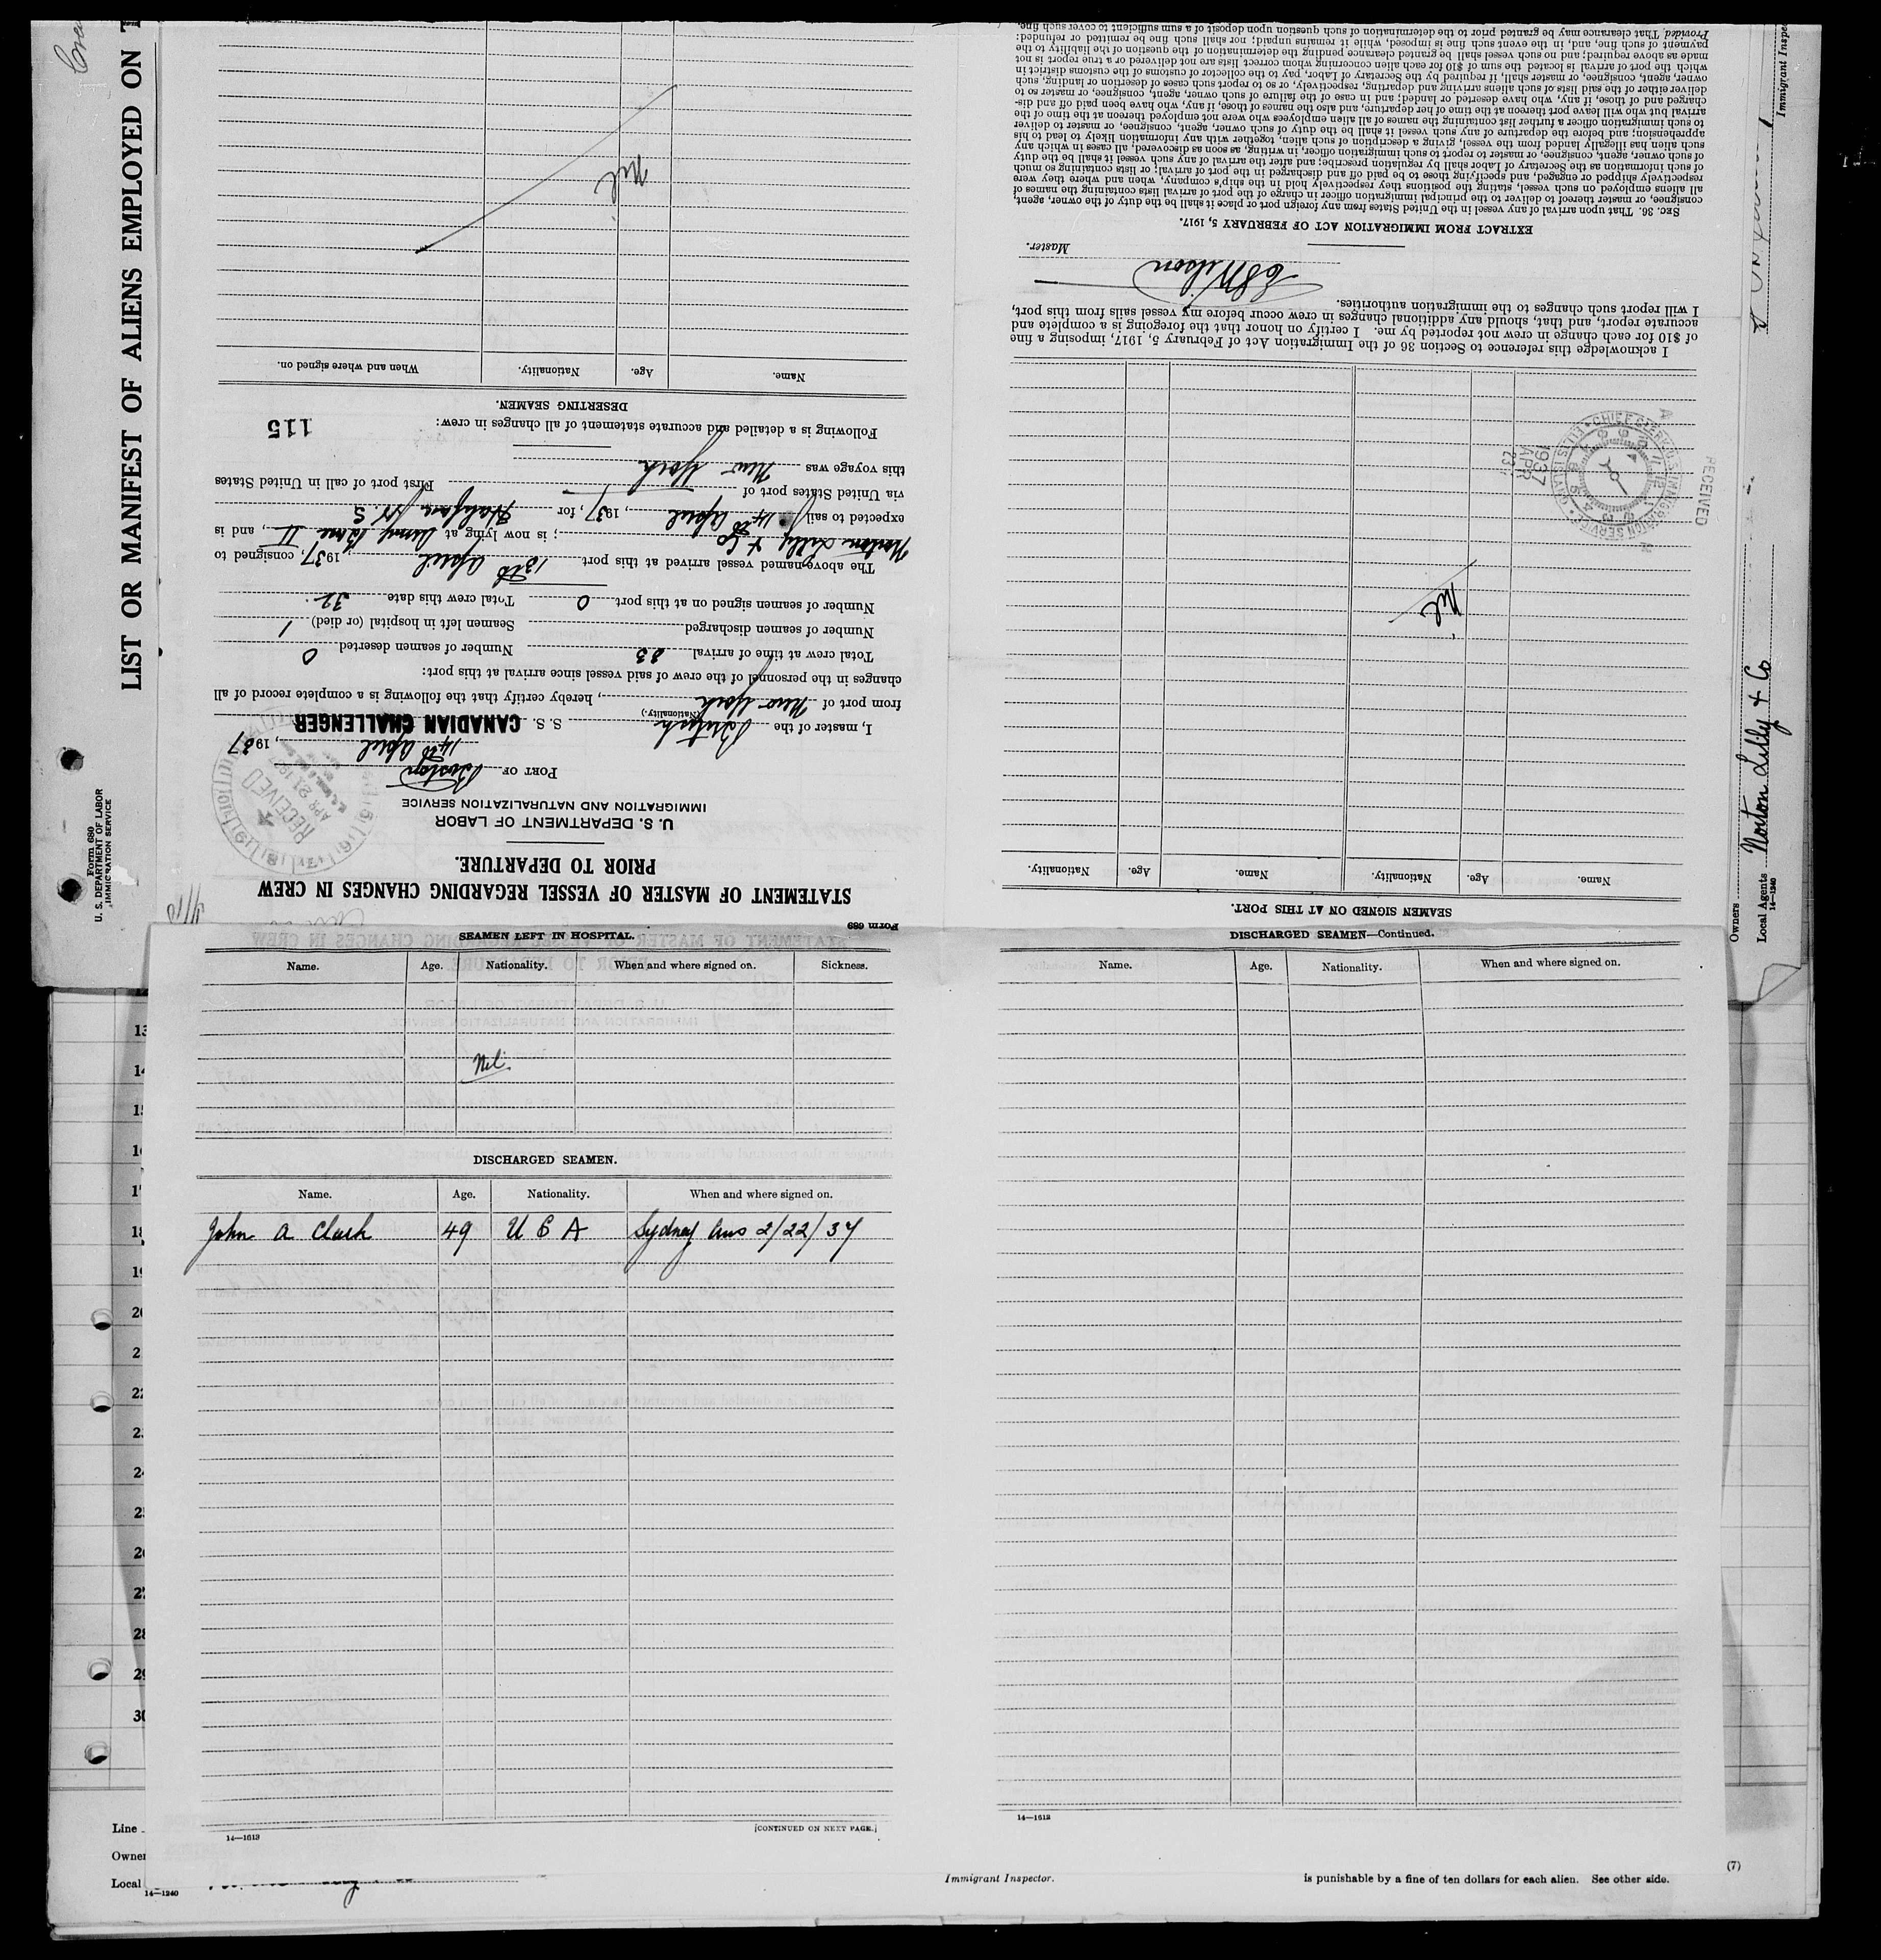 LIST OR MANIFEST OF ALIENS EMPLOYED ON T
Form 680
U. S. DEPARTMENT OF LABOR
IMMIGRATION SERVICE
Form 689
STATEMENT OF MASTER OF VESSEL REGARDING CHANGES IN CREW
PRIOR TO DEPARTURE.
U. S. DEPARTMENT OF LABOR
IMMIGRATION AND NATURALIZATION SERVICE
RECEIVED
APR 21 19
PORT OF Boston
14th April, 1937
I, master of the British S. S. CANADIAN CHALLENGER
(Nationality.)
from port of New York, hereby certify that the following is a complete record of all
changes in the personnel of the crew of said vessel since arrival at this port:
Total crew at time of arrival 33 Number of seamen deserted 0
Number of seamen discharged Seamen left in hospital (or died) 1
Number of seamen signed on at this port 0 Total crew this date 32
The above-named vessel arrived at this port 13th April, 1937, consigned to
Norton Lilly & Co; is now lying at Army Base II, and is
expected to sail 14th April, 1937, for Halifax N. S
via United States port of First port of call in United States
this voyage was New York
Following is a detailed and accurate statement of all changes in crew:
115
DESERTING SEAMEN.
Name. Age. Nationality. When and where signed on.
Nil
SEAMEN SIGNED ON AT THIS PORT.
Name. Age. Nationality. Name. Age. Nationality.
Nil
RECEIVED
CHIEF CLERK U.S. IMMIGRATION SERVICE ELLIS ISLAND
1937
APR
23
I acknowledge this reference to Section 36 of the Immigration Act of February 5, 1917, imposing a fine
of $10 for each change in crew not reported by me. I certify on honor that the foregoing is a complete and
accurate report, and that, should any additional changes in crew occur before my vessel sails from this port,
I will report such changes to the immigration authorities.
Wilson
Master.
EXTRACT FROM IMMIGRATION ACT OF FEBRUARY 5, 1917.
SEC. 36. That upon arrival of any vessel in the United States from any foreign port or place it shall be the duty of the owner, agent,
consignee, or master thereof to deliver to the principal immigration officer in charge of the port of arrival lists containing the names of
all aliens employed on such vessel, stating the positions they respectively hold in the ship's company, when and where they were
respectively shipped or engaged, and specifying those to be paid off and discharged in the port of arrival; or lists containing so much
of such information as the Secretary of Labor shall by regulation prescribe; and after the arrival of any such vessel it shall be the duty
of such owner, agent, consignee, or master to report to such immigration officer, in writing, as soon as discovered, all cases in which any
such alien has illegally landed from the vessel, giving a description of such alien, together with any information likely to lead to his
apprehension; and before the departure of any such vessel it shall be the duty of such owner, agent, consignee, or master to deliver
to such immigration officer a further list containing the names of all alien employees who were not employed thereon at the time of the
arrival but who will leave port thereon at the time of her departure, and also the names of those, if any, who have been paid off and dis-
charged and of those, if any, who have deserted or landed; and in case of the failure of such owner, agent, consignee, or master so to
deliver either of the said lists of such aliens arriving and departing, respectively, or so to report such cases of desertion or landing, such
owner, agent, consignee, or master shall, if required by the Secretary of Labor, pay to the collector of customs of the customs district in
which the port of arrival is located the sum of $10 for each alien concerning whom correct lists are not delivered or a true report is not
made as above required; and no such vessel shall be granted clearance pending the determination of the question of the liability to the
payment of such fine, and, in the event such fine is imposed, while it remains unpaid; nor shall such fine be remitted or refunded:
Provided, That clearance may be granted prior to the determination of such question upon deposit of a sum sufficient to cover such fine.
Immigrant Inspe
Owners
Local Agents Norton Lilly & Co
14—1240
SEAMEN LEFT IN HOSPITAL.
Name. Age. Nationality. When and where signed on. Sickness.
Nil
DISCHARGED SEAMEN.
Name. Age. Nationality. When and where signed on.
John A Clark 49 U S A Sydney Aus 2/22/37
14—1613
[CONTINUED ON NEXT PAGE.]
DISCHARGED SEAMEN—Continued.
Name. Age. Nationality. When and where signed on.
14—1612
13
14
15
16
17
18
19
20
21
22
24
25
26
27
28
29
30
Line
Owner
Local
14—1240
Immigrant Inspector.
is punishable by a fine of ten dollars for each alien. See other side.
(7)